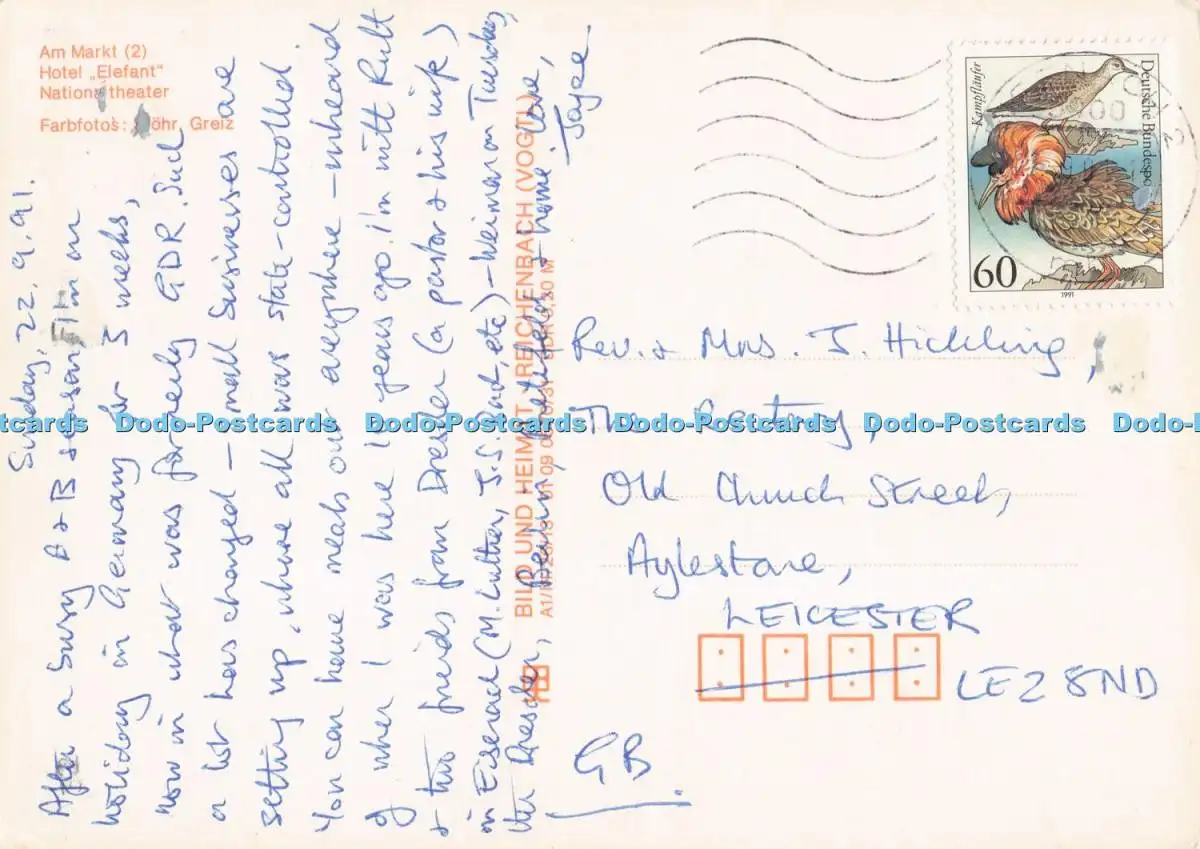 Am Markt (2)
Hotel „Elefant"
Nationaltheater
Farbfotos: Greiz
Sunday, 22.9.91.
After a busy A & B season I'm on
holiday in Germany for 3 weeks,
now in what was formerly GDR. Such
a lot has changed – small businesses are
setting up, where all was state-controlled.
You can have meals out anywhere – unheard
of when I was here 12 years ago. I'm with Ruth
& two friends from Dresden (a pastor & his wife)
in Eisenach (M. Luther, J.S. Bach, etc) – Weimar on Tuesday,
then Dresden, Berlin, & home. Love,
Joyce.
BILD UND HEIMAT REICHENBACH (VOGTL)
Kampfläufer
Deutsche Bundespost
60
1991
Rev. & Mrs. J. Hickling,
The Rectory,
Old Church Street,
Aylestone,
LEICESTER
LE2 8ND
GB
Dodo-Postcards Dodo-Postcards Dodo-Postcards Dodo-Postcards